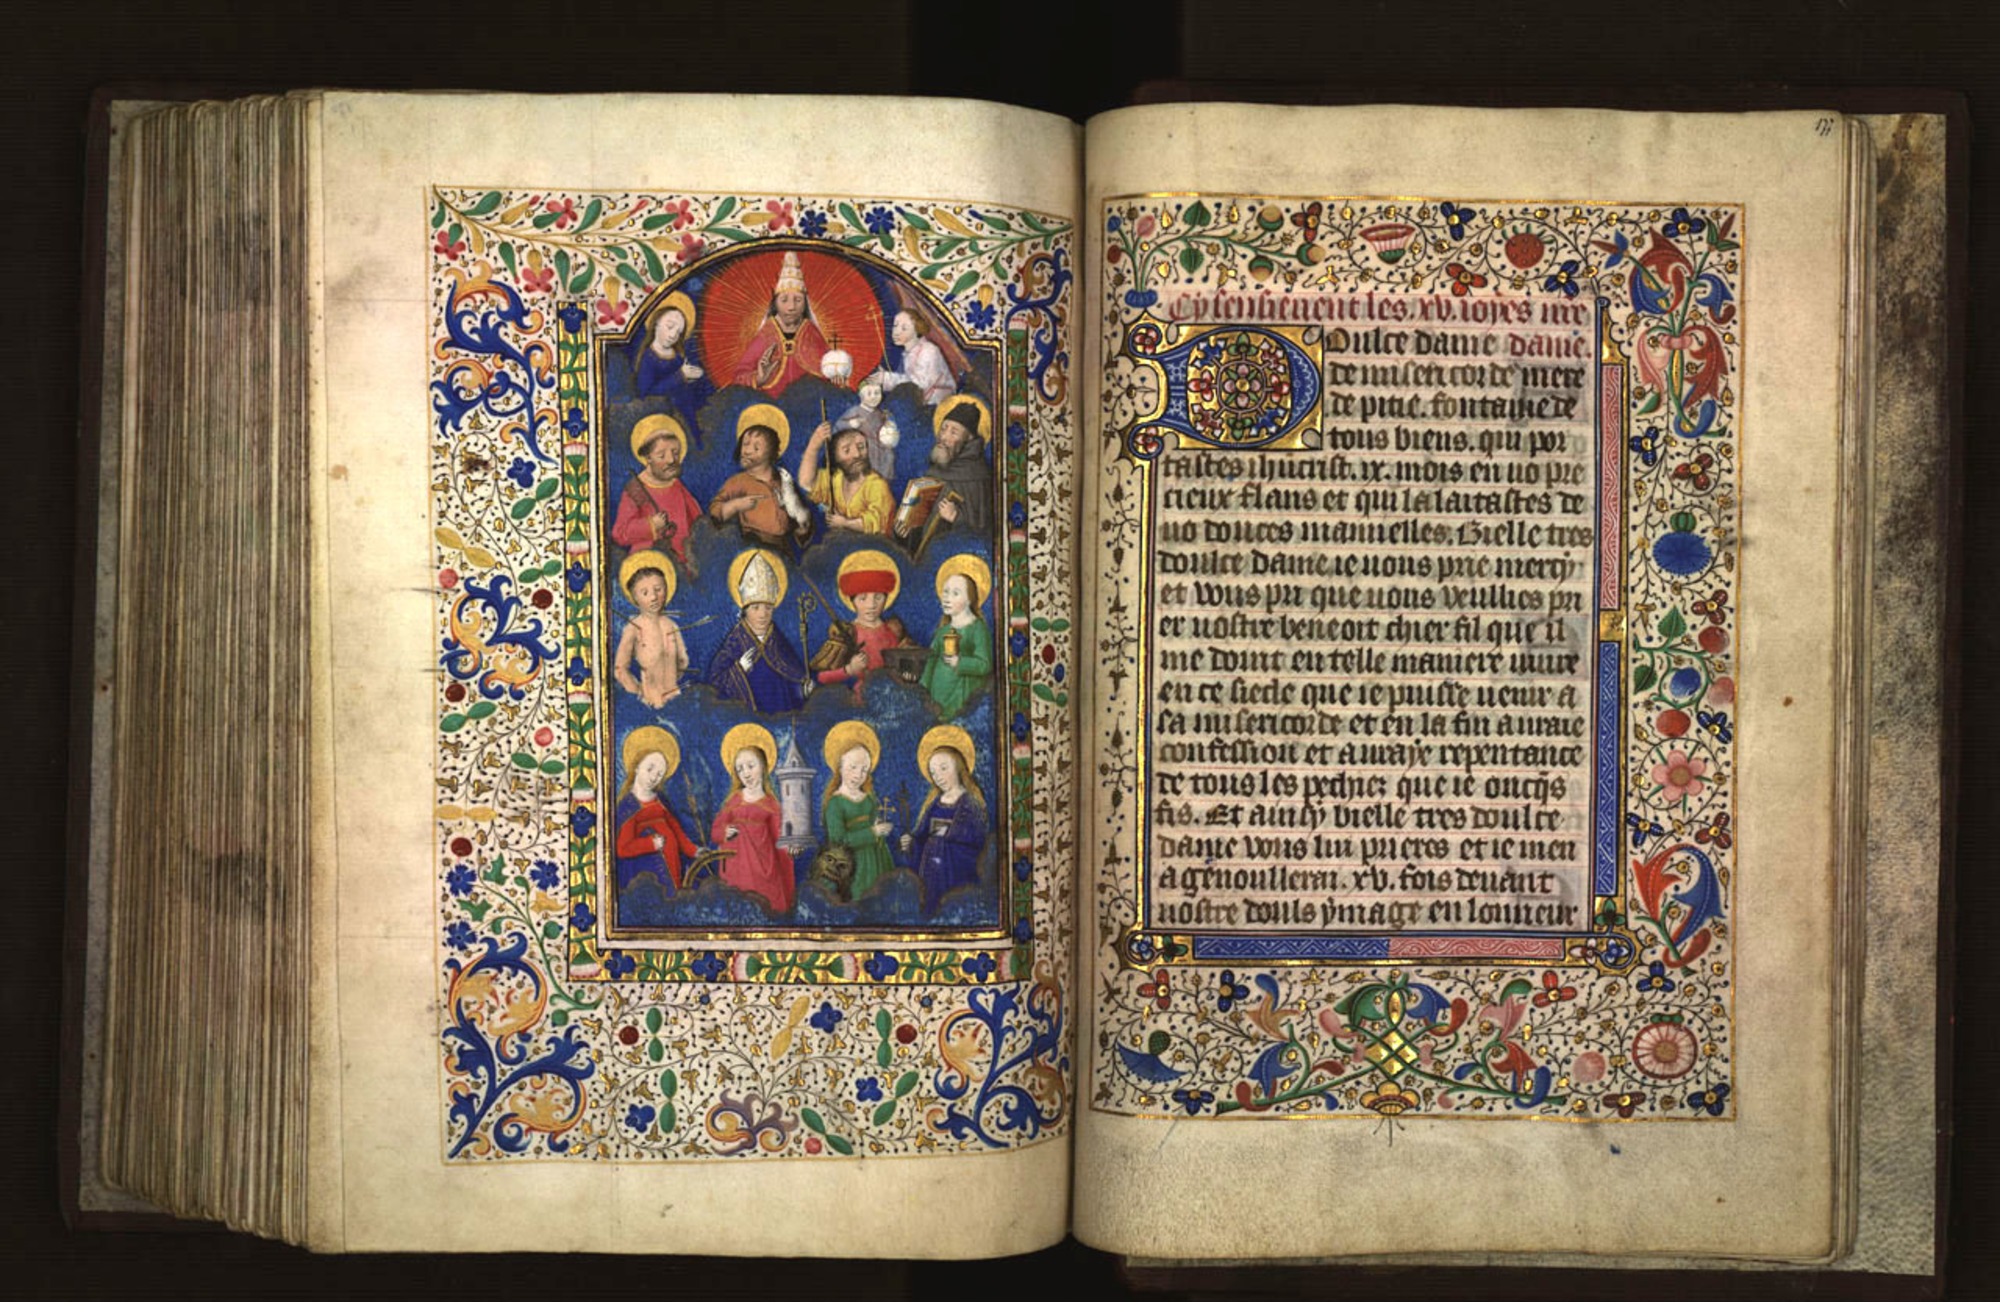 Cy sensieuent les .xv. ioyes nre
Doulce dame dame.
de misericorde mere
de pitie. fontaine de
tous biens. qui por
tastes ihucrist. ix. mois en uo pre
cieux flans et qui lalaitastes de
uo doulces mamelles. Bielle tres
doulce dame ie uous prie mercy
et vous pri que uous veullies pri
er uostre beneoit chier fil que il
me doint en telle maniere uiure
en ce siecle que ie puisse uenir a
sa misericorde et en la fin auraie
confession et auraye repentance
de tous les pechiez que ie oncqs
fis. Et ainsy bielle tres doulce
dame vous lui prieres et ie men
agenoullerai .xv. fois deuant
uostre douls ymage en lonneur